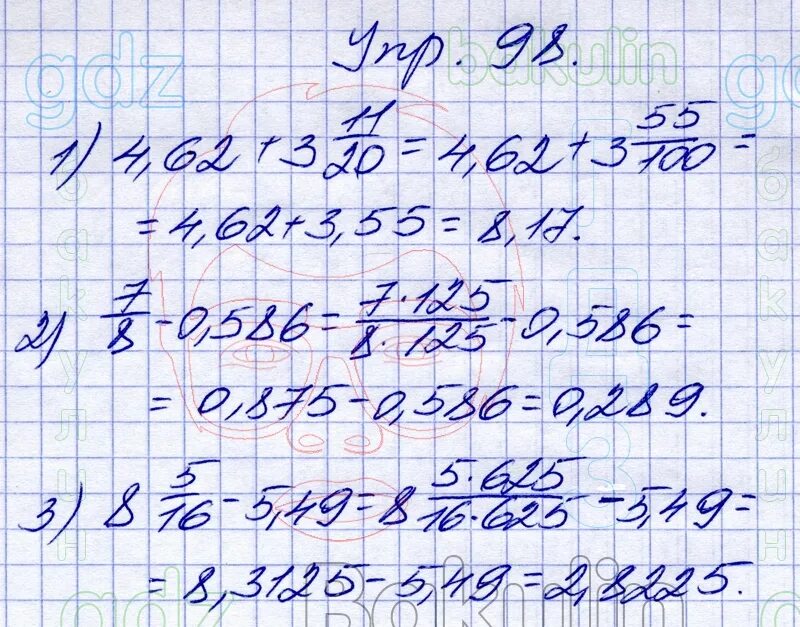 Упр. 98.
1) 4,62 + 3 11/20 = 4,62 + 3 55/100 =
= 4,62 + 3,55 = 8,17.
2) 7/8 - 0,586 = 7·125/8·125 - 0,586 =
= 0,875 - 0,586 = 0,289.
3) 8 5/16 - 5,49 = 8 5·625/16·625 - 5,49 =
= 8,3125 - 5,49 = 2,8225.
gdz
bakulin
gdz
бакулин
бакулин
gdz
Bakulin